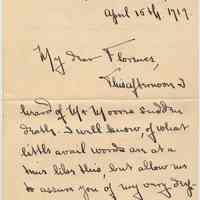 April 15th, 1919.
My dear Florence,
This afternoon I
heard of Mr Moore's sudden
death. I well know of what
little avail words are at a
time like this, but allow me
to assure you of my very dep-